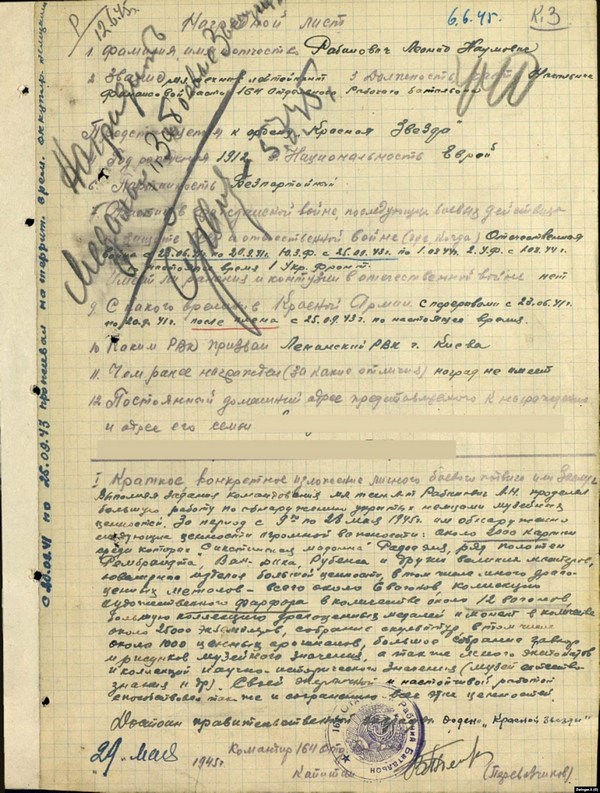 12.6.45
6.6.45.
К.3
Наградной лист
1. Фамилия имя отчество Рабинович Леонид Наумович
2. Звание мл. техник лейтенант 3. Должность Начальник
финансовой части 164 Отдельного Рабочего Батальона
Представляется к ордену "Красная Звезда"
Год рождения 1912 5. Национальность Еврей
6. Партийность Безпартийный
Участие в гражданской войне, последующих боевых действиях
отечественной войне (где, когда) Отечественная
война с 23.06.41г. по 20.9.41г. Ю.З.Ф. с 25.09.43г. по 1.08.44г. 2 У.Ф. с 1.08.44г.
время 1 Укр. Фронт.
ранения и контузии в отечественной войне нет
9. С какого времени в Красной Армии с перерывами с 23.06.41г.
по 20.9.41г. после плена с 25.09.43г. по настоящее время.
10. Каким РВК призван Ленинский РВК г. Киева
11. Чем ранее награжден (за какие отличия) наград не имеет
12. Постоянный домашний адрес представляемого к награждению
и адрес его семьи
I Краткое, конкретное изложение личного боевого подвига или
Выполняя задания командования мл. техн. л-т Рабинович Л.Н. проделал
большую работу по обнаружению укрытых немцами музейных
ценностей. За период с 9го по 28 мая 1945г. им обнаружено
следующие ценности огромной важности: около 2000 картин
среди которых Сикстинская мадонна Рафаэля, ряд полотен
Рембрандта, Ван-Дика, Рубенса и других великих мастеров,
ювелирно изделия большой ценности, в том числе много драго-
ценных металов - всего около 6 вагонов, коллекции
художественного фарфора в количестве около 12 вагонов,
большую коллекцию драгоценных медалей и монет в количестве
около 25000 экземпляров, собрание скульптур, в том числе
около 1000 ценных оригиналов, большое собрание гравюр
и рисунков музейного значения, а также много экспонатов
и колекций научно-исторического значения (музей естество-
знания и др). Своей энергичной и настойчивой работой
способствовал и сохранению всех этих ценностей.
Достоин правительственной награды ордена "Красной Звезды"
29 мая 1945г.
Командир 164
Капитан
(Перевозчиков)
Наградить
Медалью "За боевые заслуги"
с 20.09.41 по 25.09.43 проживал на территт. врем. оккупир. немцами